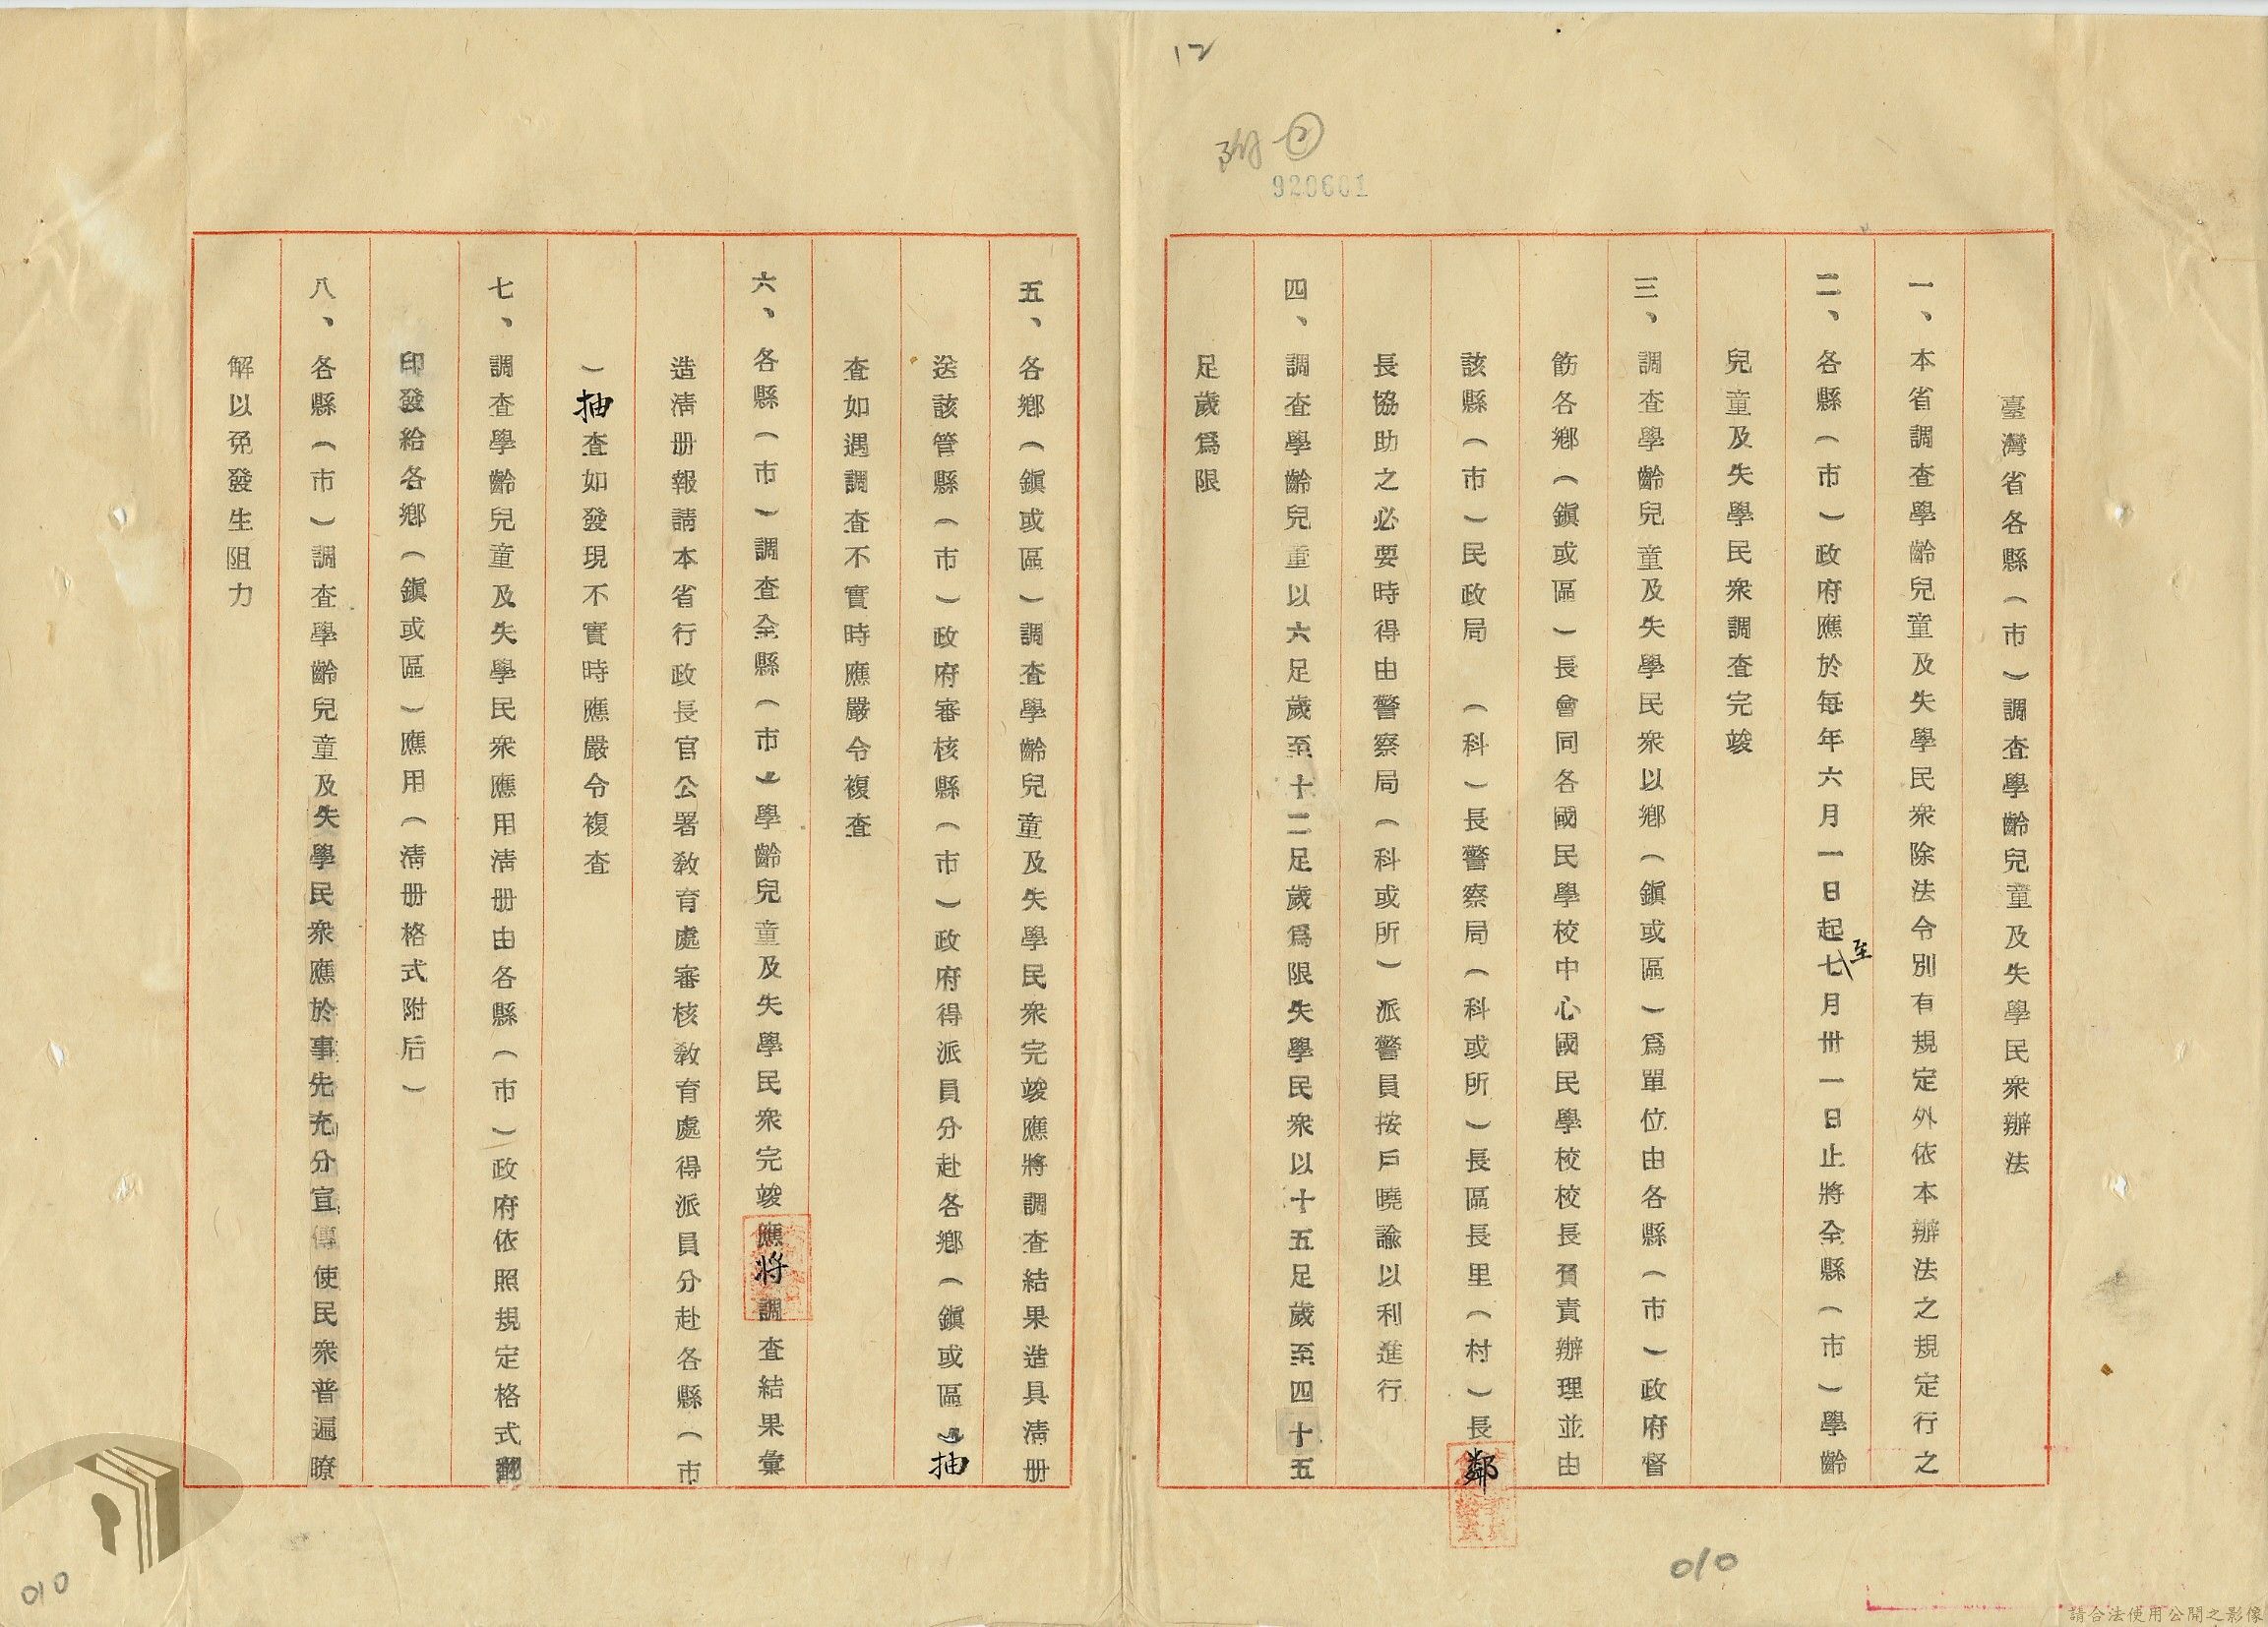 12
附②
920601
臺灣省各縣（市）調査學齡兒童及失學民衆辦法
一、本省調査學齡兒童及失學民衆除法令別有規定外依本辦法之規定行之
二、各縣（市）政府應於每年六月一日起至七月卅一日止將全縣（市）學齡
兒童及失學民衆調査完竣
三、調査學齡兒童及失學民衆以鄉（鎭或區）爲單位由各縣（市）政府督
飭各鄉（鎭或區）長會同各國民學校中心國民學校校長負責辦理並由
該縣（市）民政局（科）長警察局（科或所）長區長里（村）長鄰
長協助之必要時得由警察局（科或所）派警員按戶曉諭以利進行
四、調査學齡兒童以六足歲至十二足歲爲限失學民衆以十五足歲至四十五
足歲爲限
五、各鄉（鎭或區）調査學齡兒童及失學民衆完竣應將調査結果造具淸册
送該管縣（市）政府審核縣（市）政府得派員分赴各鄉（鎭或區）抽
査如遇調査不實時應嚴令複査
六、各縣（市）調査全縣（市）學齡兒童及失學民衆完竣應將調査結果彙
造淸册報請本省行政長官公署敎育處審核敎育處得派員分赴各縣（市
）抽査如發現不實時應嚴令複査
七、調査學齡兒童及失學民衆應用淸册由各縣（市）政府依照規定格式翻
印發給各鄉（鎭或區）應用（淸册格式附后）
八、各縣（市）調査學齡兒童及失學民衆應於事先充分宣傳使民衆普遍瞭
解以免發生阻力
010
010
請合法使用公開之影像